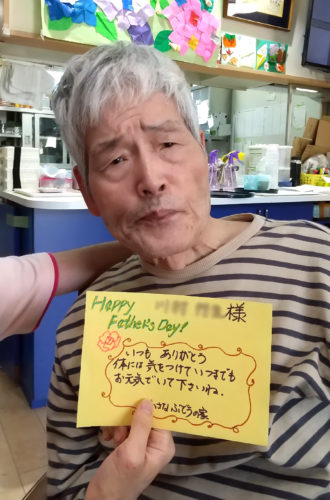 Happy
Father's Day!
様
いつも ありがとう
体には気をつけていつまでも
お元気でいて下さいね。
さなぶどうの家